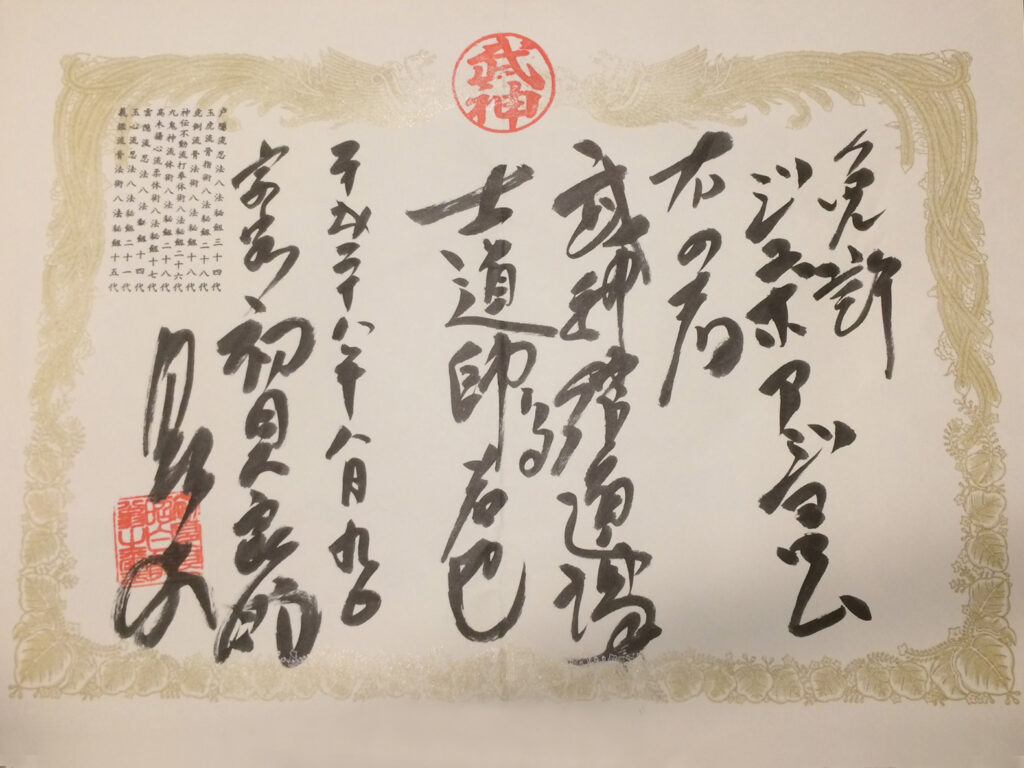 武神
免許
右の者
武神館道場
士道師
者也
平成二十八年八月九日
宗家 初見良昭
戸隠流忍法八法秘剣三十四代
玉虎流骨指術八法秘剣二十八代
虎倒流骨法術八法秘剣十八代
神伝不動流打拳体術八法秘剣二十六代
九鬼神流体術八法秘剣二十八代
高木揚心流柔体術八法秘剣十七代
雲隠流忍法八法秘剣十四代
玉心流忍法八法秘剣二十一代
義鑑流骨法術八法秘剣十五代